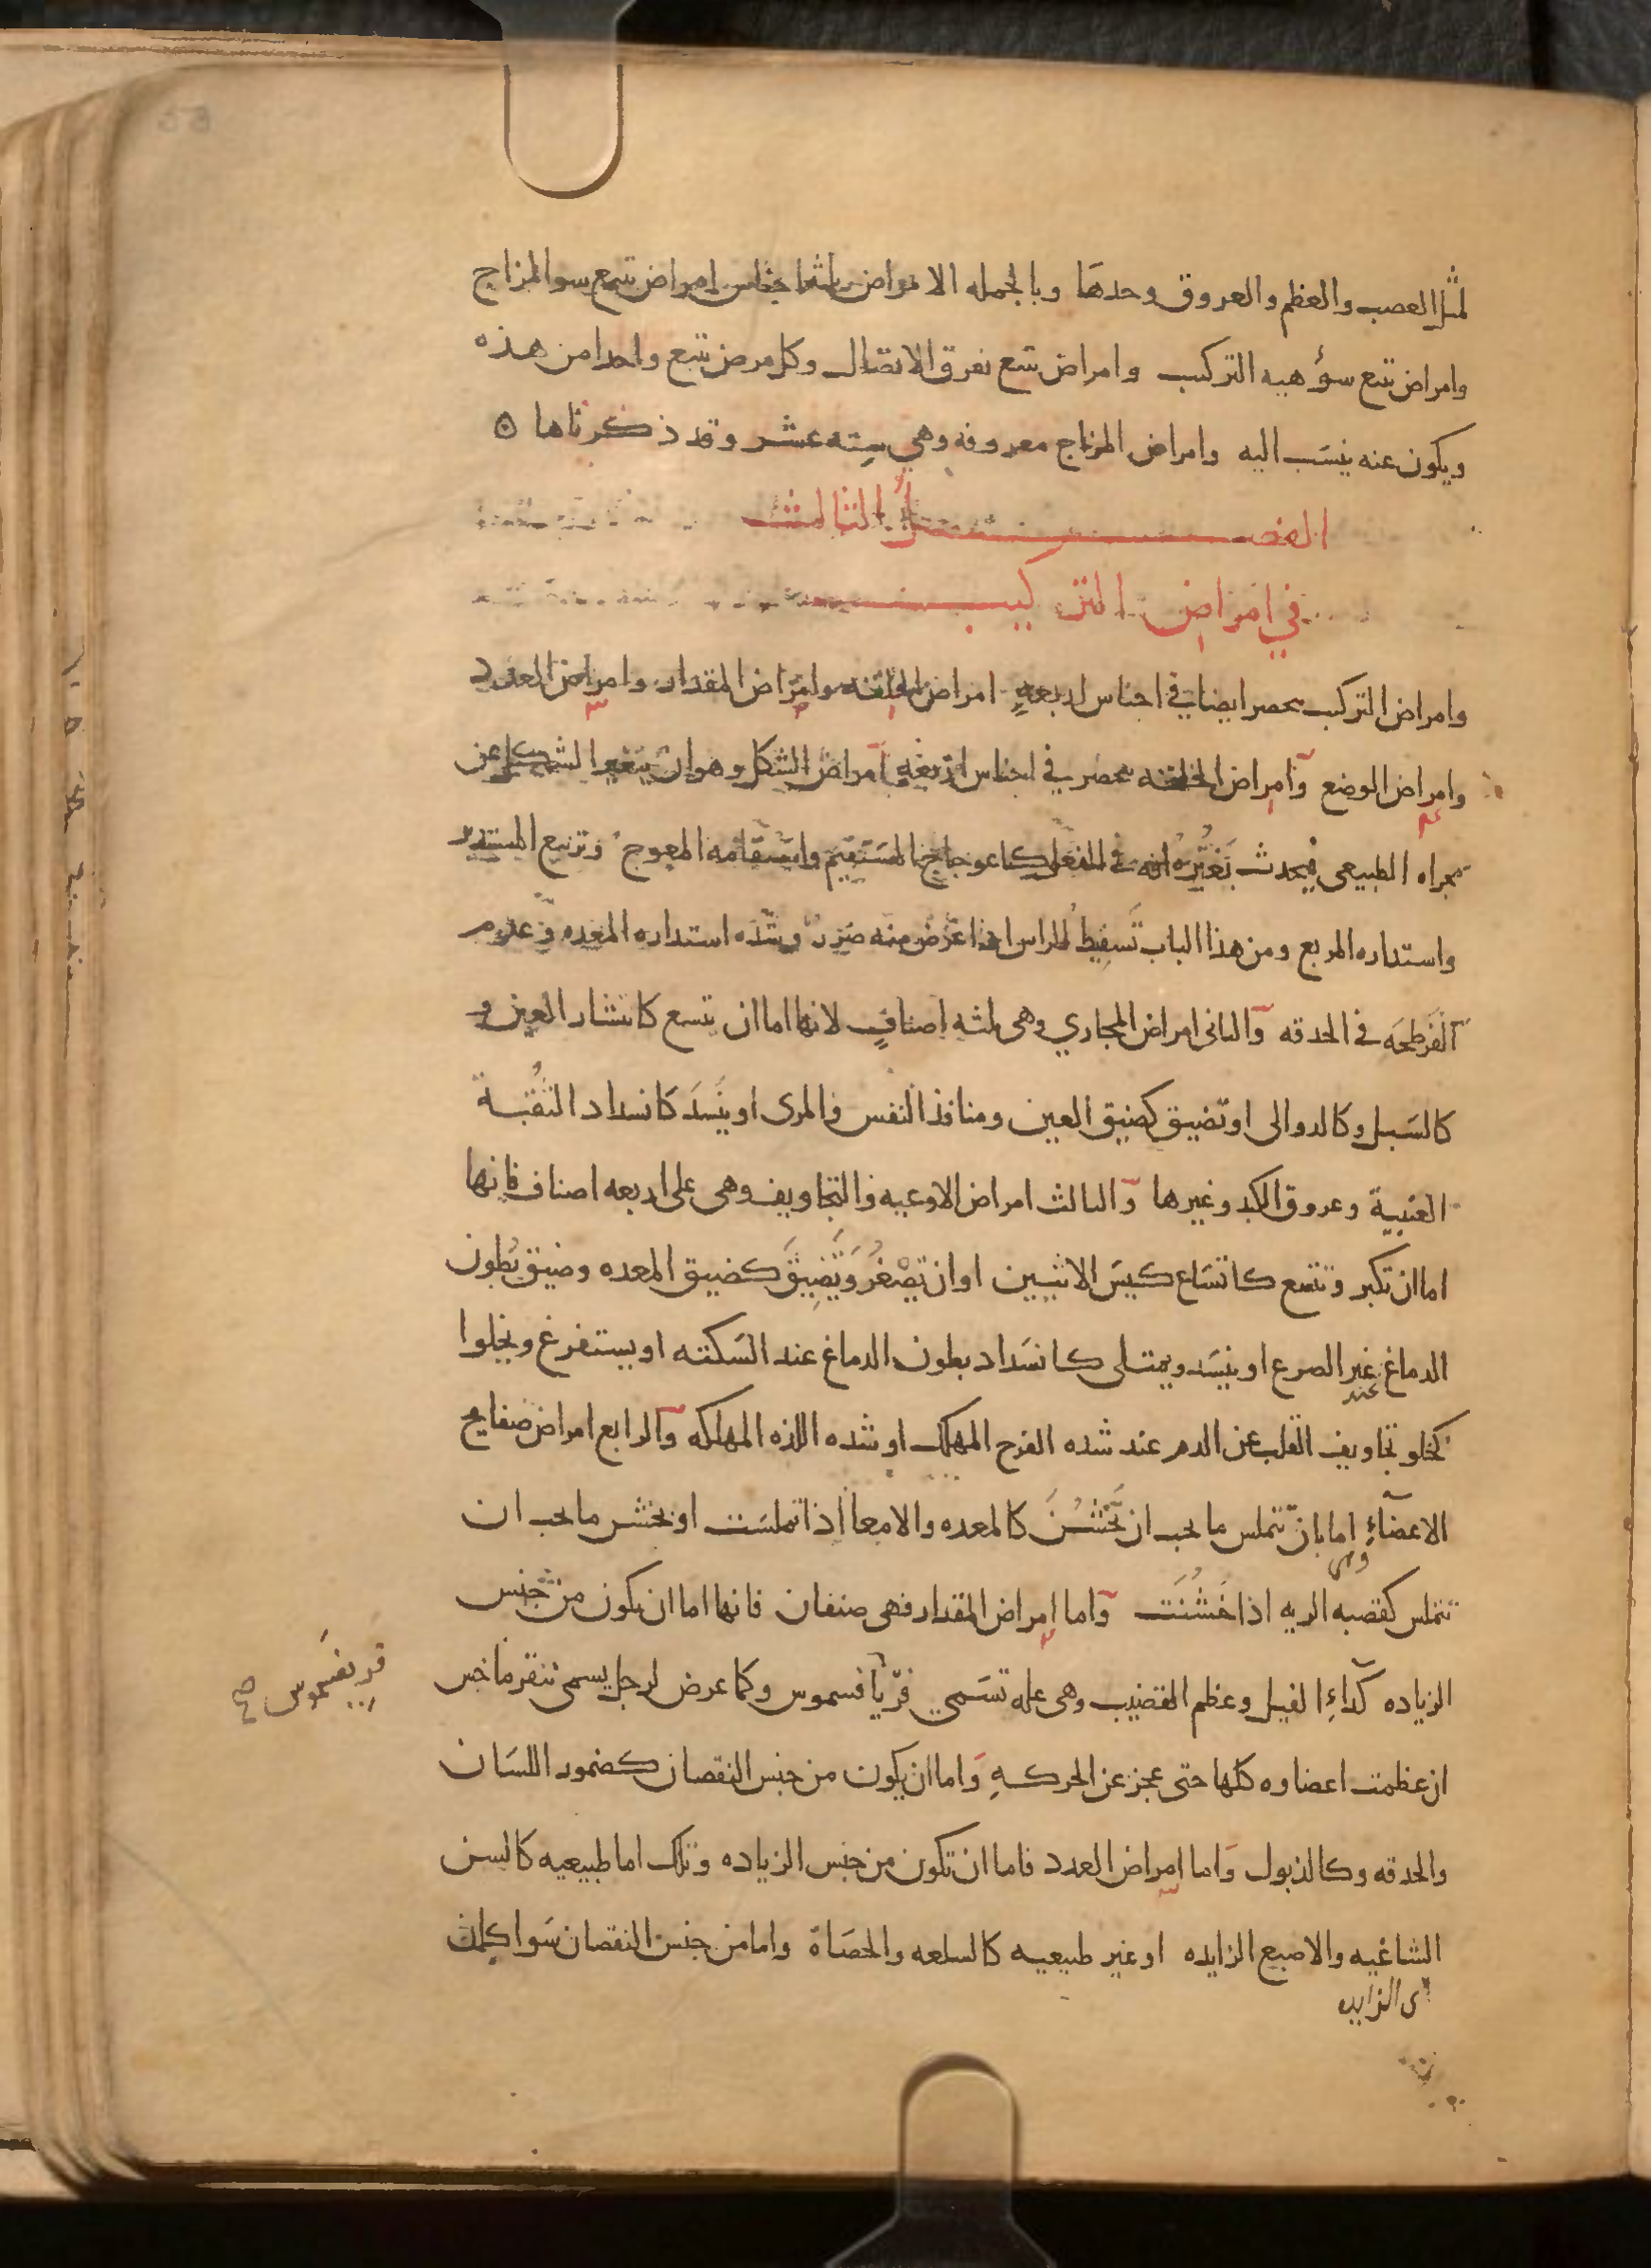 لمثل العصب والعظم والعروق وحدها وبالجمله الامراض ثلثه اجناس امراض تتبع سو المزاج
وامراض تتبع سؤ هيه التركيب وامراض تتبع تفرق الاتصال وكل مرض تتبع واحدا من هذه
ويكون عنه ينسَب اليه وامراض المزاج معروفه وهي سته عشر وقد ذكرناها
الفصل الثالث
في امراض التركيب
وامراض التركيب ينحصر ايضا في اجناس اربعهٍ امراض الخلقه وامراض المقدار وامراض العدد
وامراض الوضع وامراض الخلقه ينحصر في اجناس اربعهٍ امراض الشكل وهو ان يتغير الشكل عن
مجراه الطبيعي فيحدث بتغيّره افه في الفعل كاعوجاج المستقيم واستقامه المعوج وتربيع المستدير
واستداره المربع ومن هذا الباب تَسفيط الراس اذا عرض منه ضرر وشده استداره المعده وعدم
الفَرطحَه في الحدقه والثاني امراض المجاري وهي ثلثه اصنافٍ لانها اما ان يتسع كانتشار العين و
كالسَبل وكالدوالي او تضيق كضيق العين ومنافذ النفس والمرى او ينسَدَ كانسداد الثُقبة
العنبية وعروق الكبد وغيرها والثالث امراض الاوعيه والتجاويف وهي على اربعه اصناف فانها
اما ان تكبر وتتسع كاتسَاع كيسَ الانثيين او ان تصْغُرَ وتَضيقَ كضيق المعده وضيق بُطون
الدماغ عند الصرع او ينسَد ويمتلى كانسَداد بطون الدماغ عند السَكته او يستفرغ ويخلوا
كخلو تجاويف القلب عن الدم عند شده الفرح المهلك او شده اللذه المهلكه والرابع امراض صفايح
الاعضآءِ وهي اما بان تتملس ما يجب ان تَخْشُنَ كالمعده والامعا اذا تملسَت او يخشن ما يجب ان
تتملس كقصبه الريه اذا خَشُنَت واما امراض المقدار فهي صنفان فانها اما ان يكون من جنس
الزياده كدآءِ الفيل وعظم القضيب وهي عله تسَمي فرّيآفسموس وكما عرض لرجل يسمى نيقوماخس
قريفسَموس صح
ان عظمت اعضاوه كلها حتى عجز عن الحركهِ وَاما ان يكون من جنس النقصان كضمور اللسَان
والحدقه وكالذبول وَاما امراض العدد فاما ان تكون من جنس الزياده وتلك اما طبيعيه كالسن
الشاغيه والاصبع الزايده او غير طبيعيه كالسلعه والحصَاة واما من جنس النقصان سَوا كانت
اى الزايده